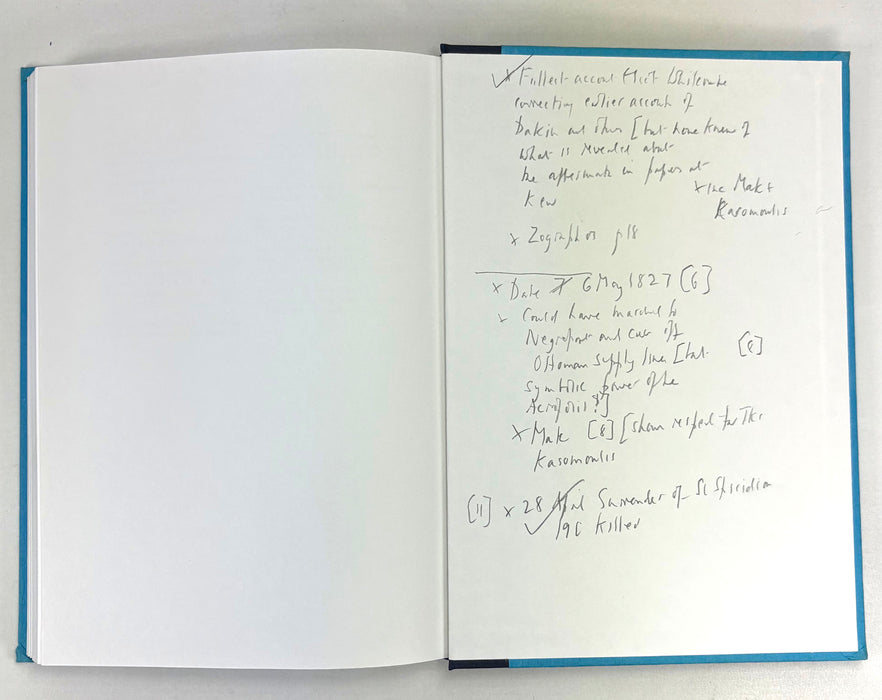 x Fullest account that Whitcombe
correcting earlier account of
Dakin and others [but have knew of
what is revealed about
the aftermath in papers at
Kew
x the Mak +
Kasomoulis
x Zographos p18
x Date 6 May 1827 [6]
Could have marched to
Negropont and cut off
Ottoman supply line [but [6]
symbolic power of the
Acropolis?]
x Mak [8] [shows respect for The
Kasomoulis
[11] x 28 April Surrender of St Spiridion
190 killed